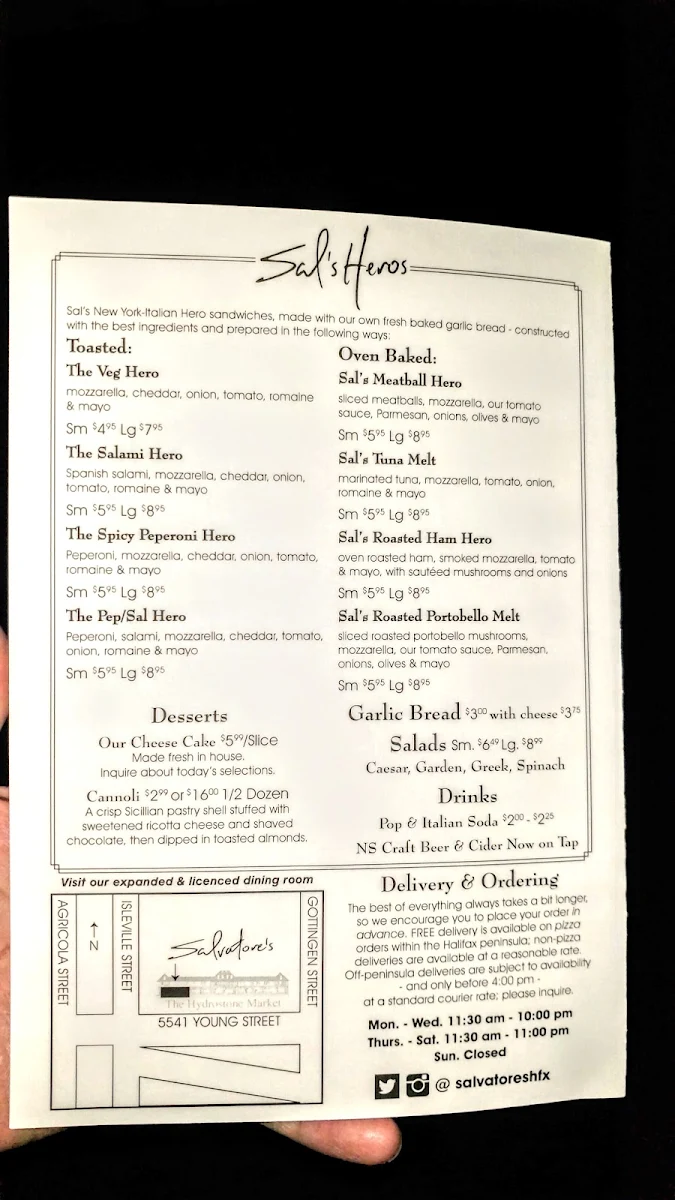 Sal's Heros
Sal's New York-Italian Hero sandwiches, made with our own fresh baked garlic bread - constructed
with the best ingredients and prepared in the following ways:
Toasted:
The Veg Hero
mozzarella, cheddar, onion, tomato, romaine
& mayo
Sm $4.95 Lg $7.95
The Salami Hero
Spanish salami, mozzarella, cheddar, onion,
tomato, romaine & mayo
Sm $5.95 Lg $8.95
The Spicy Peperoni Hero
Peperoni, mozzarella, cheddar, onion, tomato,
romaine & mayo
Sm $5.95 Lg $8.95
The Pep/Sal Hero
Peperoni, salami, mozzarella, cheddar, tomato,
onion, romaine & mayo
Sm $5.95 Lg $8.95
Desserts
Our Cheese Cake $5.99/Slice
Made fresh in house.
Inquire about today's selections.
Cannoli $2.99 or $16.00 1/2 Dozen
A crisp Sicillian pastry shell stuffed with
sweetened ricotta cheese and shaved
chocolate, then dipped in toasted almonds.
Oven Baked:
Sal's Meatball Hero
sliced meatballs, mozzarella, our tomato
sauce, Parmesan, onions, olives & mayo
Sm $5.95 Lg $8.95
Sal's Tuna Melt
marinated tuna, mozzarella, tomato, onion,
romaine & mayo
Sm $5.95 Lg $8.95
Sal's Roasted Ham Hero
oven roasted ham, smoked mozzarella, tomato
& mayo, with sautéed mushrooms and onions
Sm $5.95 Lg $8.95
Sal's Roasted Portobello Melt
sliced roasted portobello mushrooms,
mozzarella, our tomato sauce, Parmesan,
onions, olives & mayo
Sm $5.95 Lg $8.95
Garlic Bread $3.00 with cheese $3.75
Salads Sm. $6.49 Lg. $8.99
Caesar, Garden, Greek, Spinach
Drinks
Pop & Italian Soda $2.00 - $2.25
NS Craft Beer & Cider Now on Tap
Visit our expanded & licenced dining room
AGRICOLA STREET
N
ISLEVILLE STREET
Salvatore's
The Hydrostone Market
GOTTINGEN STREET
5541 YOUNG STREET
Delivery & Ordering
The best of everything always takes a bit longer,
so we encourage you to place your order in
advance. FREE delivery is available on pizza
orders within the Halifax peninsula; non-pizza
deliveries are available at a reasonable rate.
Off-peninsula deliveries are subject to availability
- and only before 4:00 pm -
at a standard courier rate; please inquire.
Mon. - Wed. 11:30 am - 10:00 pm
Thurs. - Sat. 11:30 am - 11:00 pm
Sun. Closed
@ salvatoreshfx